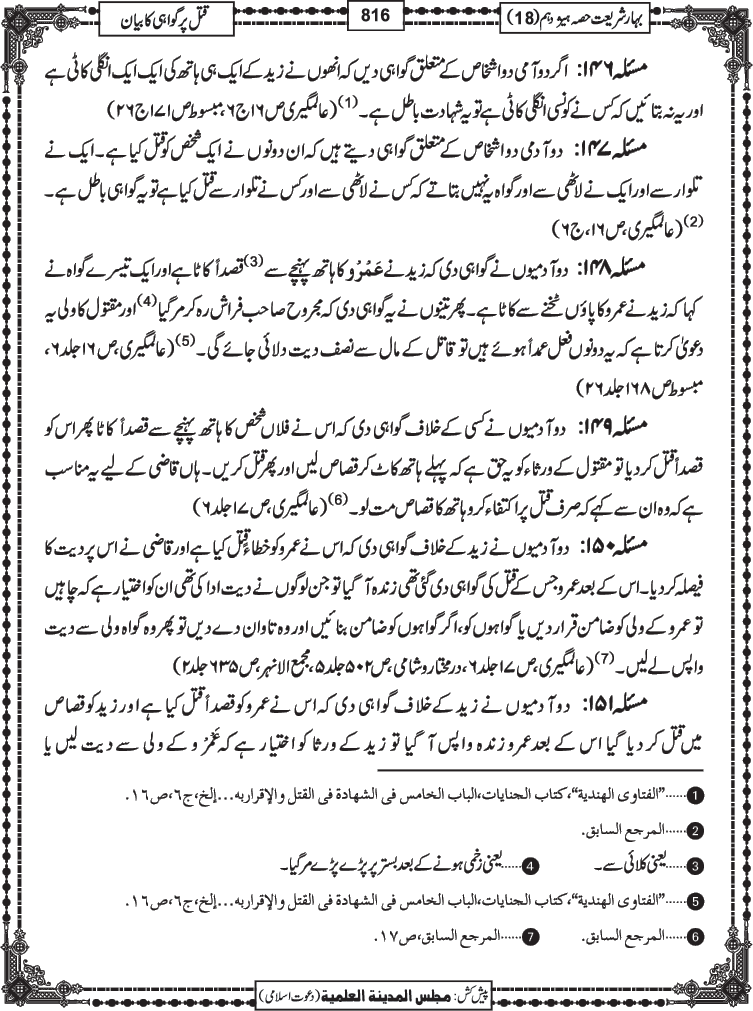 بہارِ شریعت حصہ ہیژدہم (18)
816
قتل پر گواہی کا بیان
مسئلہ ۱۴۶: اگر دو آدمی دو اشخاص کے متعلق گواہی دیں کہ انھوں نے زید کے ایک ہی ہاتھ کی ایک ایک انگلی کاٹی ہے
اور یہ نہ بتائیں کہ کس نے کونسی انگلی کاٹی ہے تو یہ شہادت باطل ہے۔ (1) (عالمگیری ص ۱۶ ج ۶، مبسوط ص ۱۷۱ ج ۲۶)
مسئلہ ۱۴۷: دو آدمی دو اشخاص کے متعلق گواہی دیتے ہیں کہ ان دونوں نے ایک شخص کو قتل کیا ہے۔ ایک نے
تلوار سے اور ایک نے لاٹھی سے اور گواہ یہ نہیں بتاتے کہ کس نے لاٹھی سے اور کس نے تلوار سے قتل کیا ہے تو یہ گواہی باطل ہے۔
(2) (عالمگیری، ص ۱۶، ج ۶)
مسئلہ ۱۴۸: دو آدمیوں نے گواہی دی کہ زید نے عَمْرْو کا ہاتھ پہنچے سے (3) قصداً کاٹا ہے اور ایک تیسرے گواہ نے
کہا کہ زید نے عمرو کا پاؤں ٹخنے سے کاٹا ہے۔ پھر تینوں نے یہ گواہی دی کہ مجروح صاحب فراش رہ کر مر گیا (4) اور مقتول کا ولی یہ
دعویٰ کرتا ہے کہ یہ دونوں فعل عمداً ہوئے ہیں تو قاتل کے مال سے نصف دیت دلائی جائے گی۔ (5) (عالمگیری، ص ۱۶ جلد ۶،
مبسوط ص ۱۶۸ جلد ۲۶)
مسئلہ ۱۴۹: دو آدمیوں نے کسی کے خلاف گواہی دی کہ اس نے فلاں شخص کا ہاتھ پہنچے سے قصداً کاٹا پھر اس کو
قصداً قتل کر دیا تو مقتول کے ورثاء کو یہ حق ہے کہ پہلے ہاتھ کاٹ کر قصاص لیں اور پھر قتل کریں۔ ہاں قاضی کے لیے یہ مناسب
ہے کہ وہ ان سے کہے کہ صرف قتل پر اکتفاء کرو ہاتھ کا قصاص مت لو۔ (6) (عالمگیری، ص ۱۷ جلد ۶)
مسئلہ ۱۵۰: دو آدمیوں نے زید کے خلاف گواہی دی کہ اس نے عمرو کو خطاءً قتل کیا ہے اور قاضی نے اس پر دیت کا
فیصلہ کر دیا۔ اس کے بعد عمرو جس کے قتل کی گواہی دی گئی تھی زندہ آ گیا تو جن لوگوں نے دیت ادا کی تھی ان کو اختیار ہے کہ چاہیں
تو عمرو کے ولی کو ضامن قرار دیں یا گواہوں کو، اگر گواہوں کو ضامن بنائیں اور وہ تاوان دے دیں تو پھر وہ گواہ ولی سے دیت
واپس لے لیں۔ (7) (عالمگیری، ص ۱۷ جلد ۶، درمختار و شامی، ص ۵۰۲ جلد ۵، مجمع الانہر، ص ۶۳۵ جلد ۲)
مسئلہ ۱۵۱: دو آدمیوں نے زید کے خلاف گواہی دی کہ اس نے عمرو کو قصداً قتل کیا ہے اور زید کو قصاص
میں قتل کر دیا گیا اس کے بعد عمرو زندہ واپس آ گیا تو زید کے ورثا کو اختیار ہے کہ عَمْرْو کے ولی سے دیت لیں یا
1 ......"الفتاوی الھندیة"، کتاب الجنایات، الباب الخامس فی الشھادة فی القتل والإقراربه...إلخ، ج٦، ص١٦.
2 ......المرجع السابق.
3 ......یعنی کلائی سے۔ 4 ......یعنی زخمی ہونے کے بعد بستر پر پڑے پڑے مر گیا۔
5 ......"الفتاوی الھندیة"، کتاب الجنایات، الباب الخامس فی الشھادة فی القتل والإقراربه...إلخ، ج٦، ص١٦.
6 ......المرجع السابق. 7 ......المرجع السابق، ص١٧.
پیش کش: مجلس المدینة العلمیة (دعوت اسلامی)